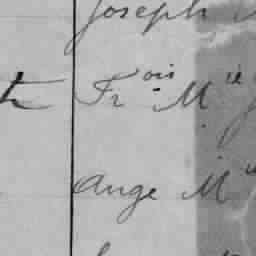 Joseph
Fr.ois M.ie
Ange M.ie